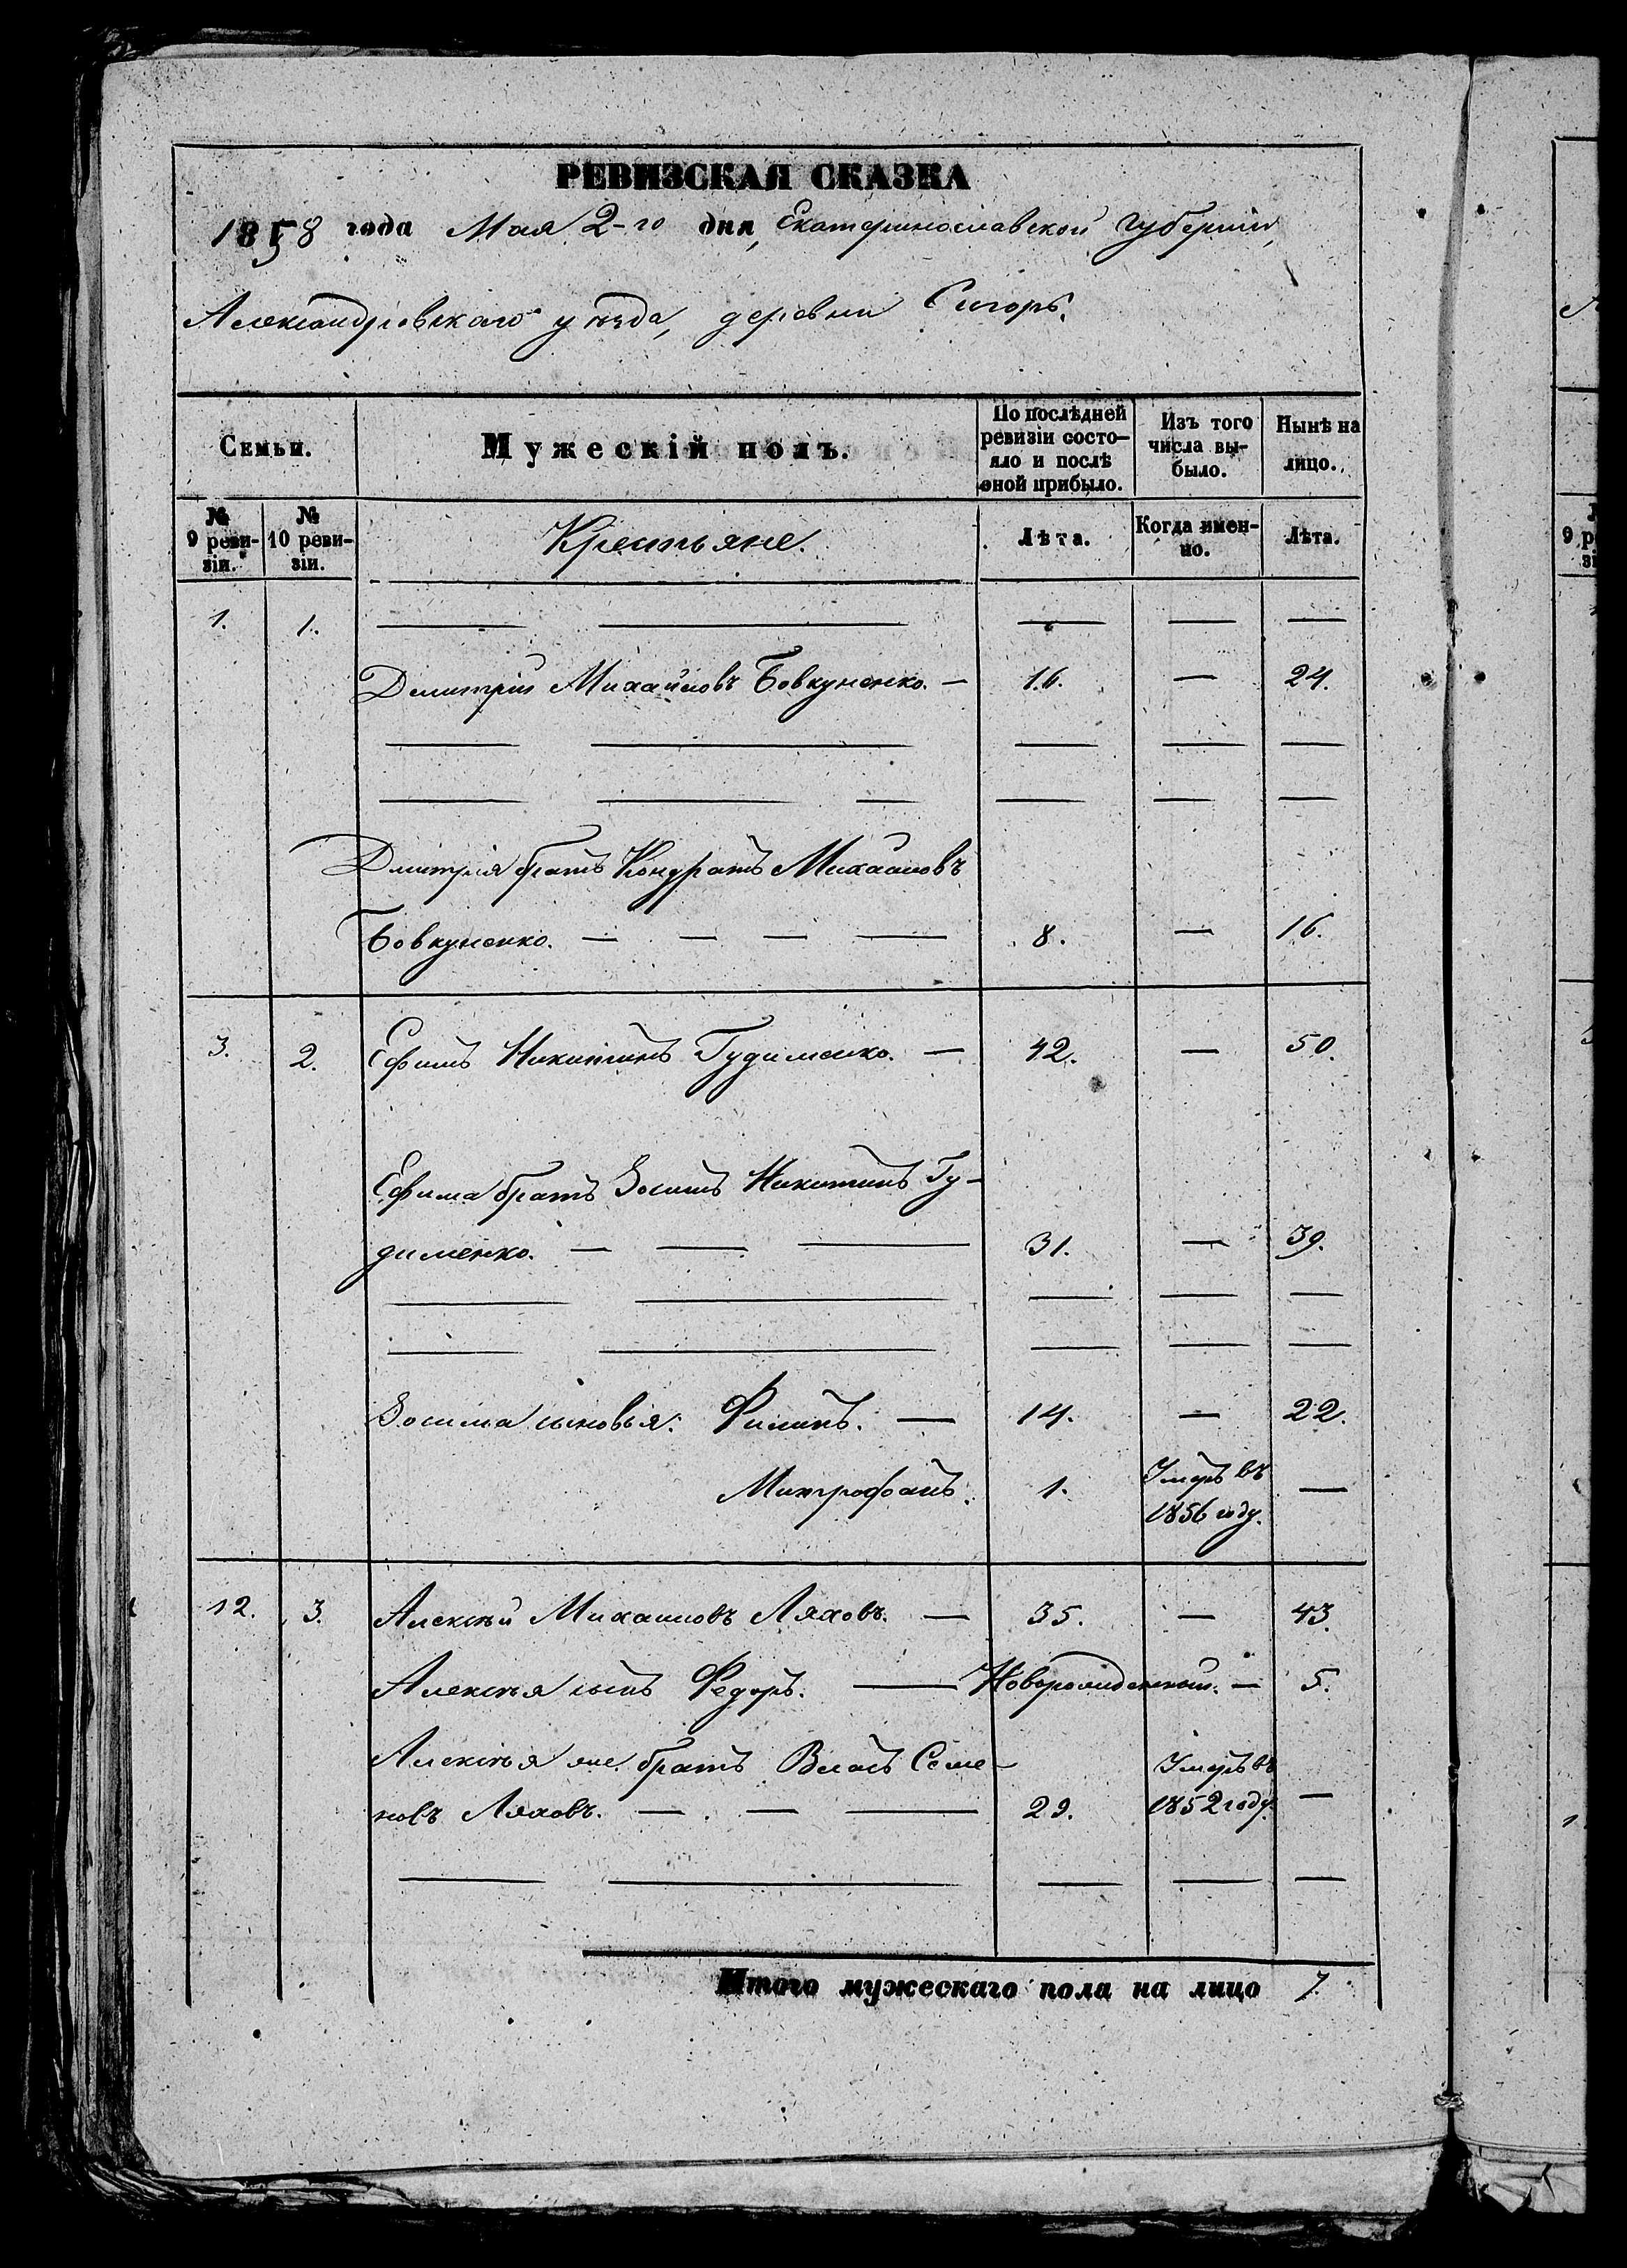 РЕВИЗСКАЯ СКАЗКА
1858 года Мая 2-го дня, Екатеринославской губерніи,
Александровскаго уѣзда, деревни
Семьи. Мужескій полъ. По послѣдней ревизіи состояло и послѣ оной прибыло. Изъ того числа выбыло. Нынѣ на лицо.
№ 9 ревизіи. № 10 ревизіи. Крестьяне. Лѣта. Когда именно. Лѣта.
1. 1.
Дмитрій Михайловъ Бовкуненко. — 16. — 24.
Дмитрія братъ Кондратъ Михайловъ
Бовкуненко. — — — — 8. — 16.
3. 2. Ефимъ Никитинъ Гудименко. — 42. — 50.
Ефима братъ Зосимъ Никитинъ Гу-
дименко. — — — 31. — 39.
Зосима сыновья: Филипъ. — 14. — 22.
Митрофанъ. 1. Умеръ въ —
1856 году.
12. 3. Алексѣй Михаиловъ Ляховъ. — 35. — 43.
Алексѣя сынъ Федоръ. — Новорожденный. — 5.
Алексѣя же братъ Власъ Семе- Умеръ въ
новъ Ляховъ. — — — 29. 1852 году. —
Итого мужескаго пола на лицо 7.